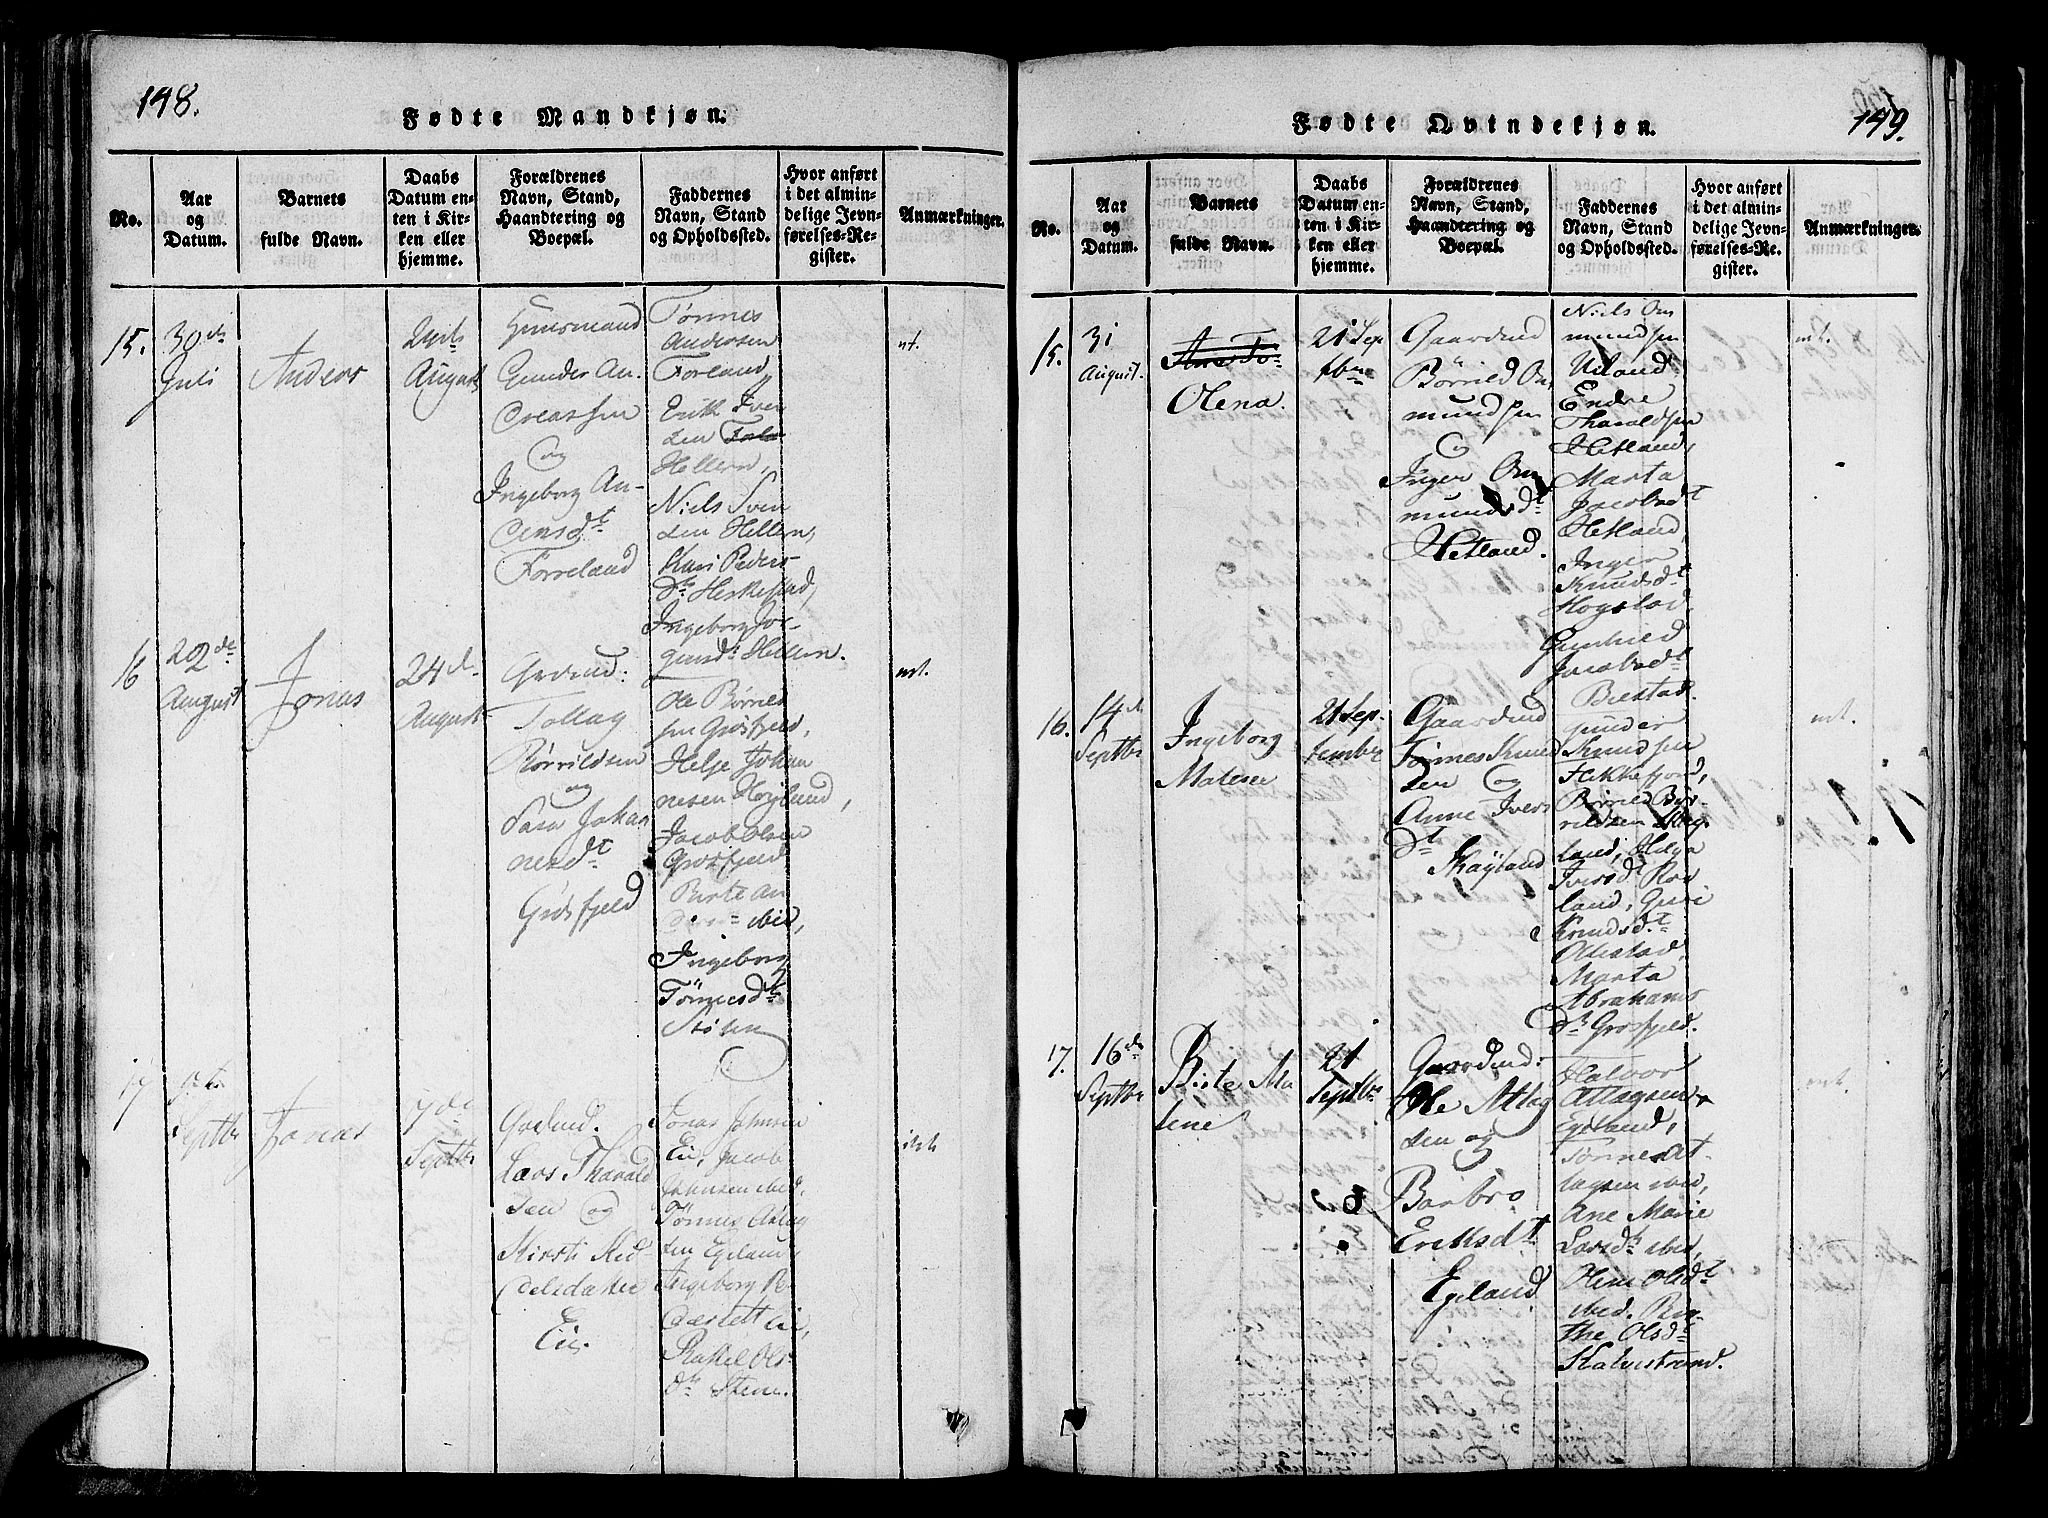 148.
Fødte Mandkjøn.
No.
Aar
og
Datum.
Barnets
fulde Navn.
Daabs
Datum en-
ten i Kir-
ken eller
hjemme.
Forældrenes
Navn, Stand,
Haandtering og
Boepæl.
Faddernes
Navn, Stand
og Opholdssted.
Hvor anført
i det almin-
delige Jevn-
førelses-Re-
gister.
Anmærkninger.
15.
30de
Juli
Anders
August
Huusmand
Gunder An-
dreassen
og
Ingeborg An-
Forreland
Tønnes
Andersen
Førland,
Erik Iver
sen
Hellern,
Niels Sven
sen Hellern,
Kari Peders
dr Heskestad,
Ingeborg Jør-
gensdr Hellern.
nt.
16
22de
August
Jonas
24de
August
Grdmd:
Tollag
Børrildsen
og
Sara Johan
nesdt
Grøsfjeld
Ole Børrild
sen Grøsfjeld,
Helje Johan
nesen Høyland,
Jacob Olsen
Grøsfjeld
Birte An
ibid,
Ingeborg
Tønnesdt
Stølen
nt.
17
Septbr
Jonas
7de
Septbr
Grdmd.
Lars Tharald
sen og
Kirsti Mid-
Eie.
Jonas Johnsen
Eie, Jacob
Johnsen ibid,
Tønnes Aslag
sen Egeland,
Ingeborg P
Rakel Ols-
dr Steene.
149.
Fødte Qvindekjøn.
No.
Aar
og
Datum.
Barnets
fulde Navn.
Daabs
Datum en-
ten i Kir-
ken eller
hjemme.
Forældrenes
Navn, Stand,
Haandtering og
Boepæl.
Faddernes
Navn, Stand
og Opholdssted.
Hvor anført
i det almin-
delige Jevn-
førelses-Re-
gister.
Anmærkninger.
15.
31
August.
Olena.
21 Sep
tbr
Gaardmd
Børrild Om
mundsen
og
Inger Om
mundsdt
Hetland.
Niels Om
mundsen
Ueland,
Endre
Tharaldsen
Hetland,
Marta
Jacobsdt
Hetland,
Inger
Knudsdt
Hogstad,
Gunhild
Jacobsdt
Bilstad.
nt.
16.
14de
Septbr
Ingeborg
Malene
21 Sep-
tember
Gaardmd
Tønnes Knud
sen og
Anne Ivers
dt
Skayland
Gunder
Knudsen
Flikkefjord,
Børild Bør-
rildsen
land, Helga
Iversdt Rod
land, Guri
Knudsdt
Ollestad,
Marta
Abrahams
dr Grøsfjeld.
nt.
17.
16de
Septbr
Birte Ma
lene
21
Septbr
Gaardmd:
Ole Atlag
sen og
Barbro
Eriksdt
Egeland
Halvor
Attagsen
Egeland,
Tønnes At-
lagsen ibid,
Ane Marie
Larsdr ibid,
Oline Olsdt
ibid. Bir-
the Olsdt
Kalvestrand.
nt.